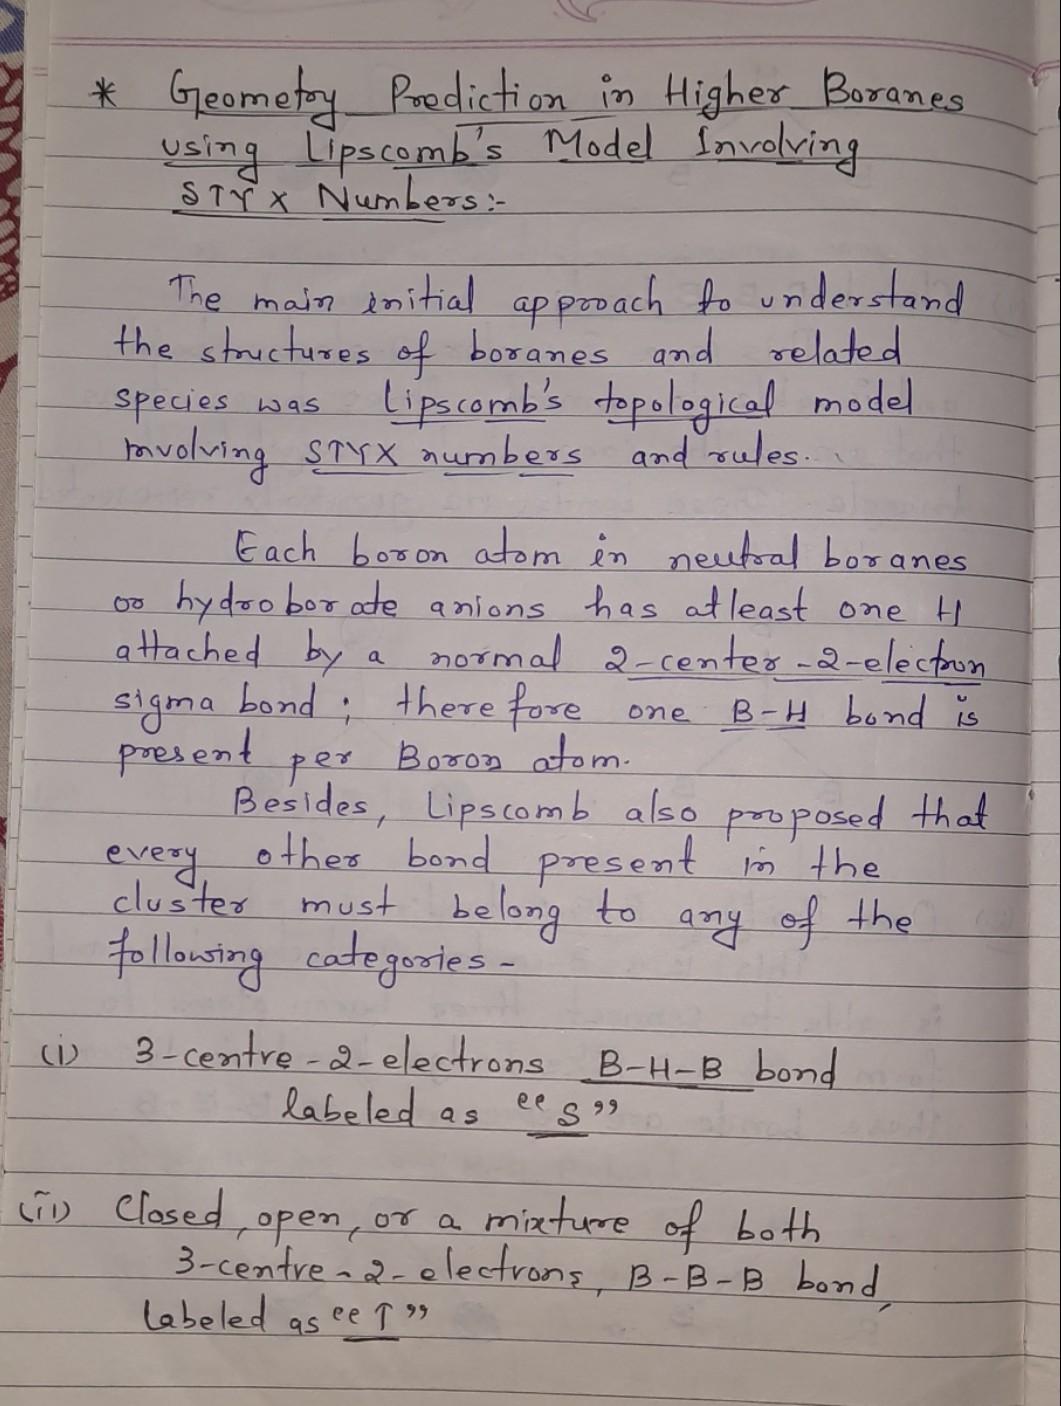 * Geometry Prediction in Higher Boranes
using Lipscomb's Model Involving
STYX Numbers:-
The main initial approach to understand
the structures of boranes and related
species was Lipscomb's topological model
involving STYX numbers and rules.
Each boron atom in neutral boranes
or hydroborate anions has atleast one H
attached by a normal 2-center-2-electron
sigma bond; therefore one B-H bond is
present per Boron atom.
Besides, Lipscomb also proposed that
every other bond present in the
cluster must belong to any of the
following categories-
(i) 3-centre-2-electrons B-H-B bond
labeled as "S"
(ii) Closed, open, or a mixture of both
3-centre-2-electrons, B-B-B bond,
labeled as "T"